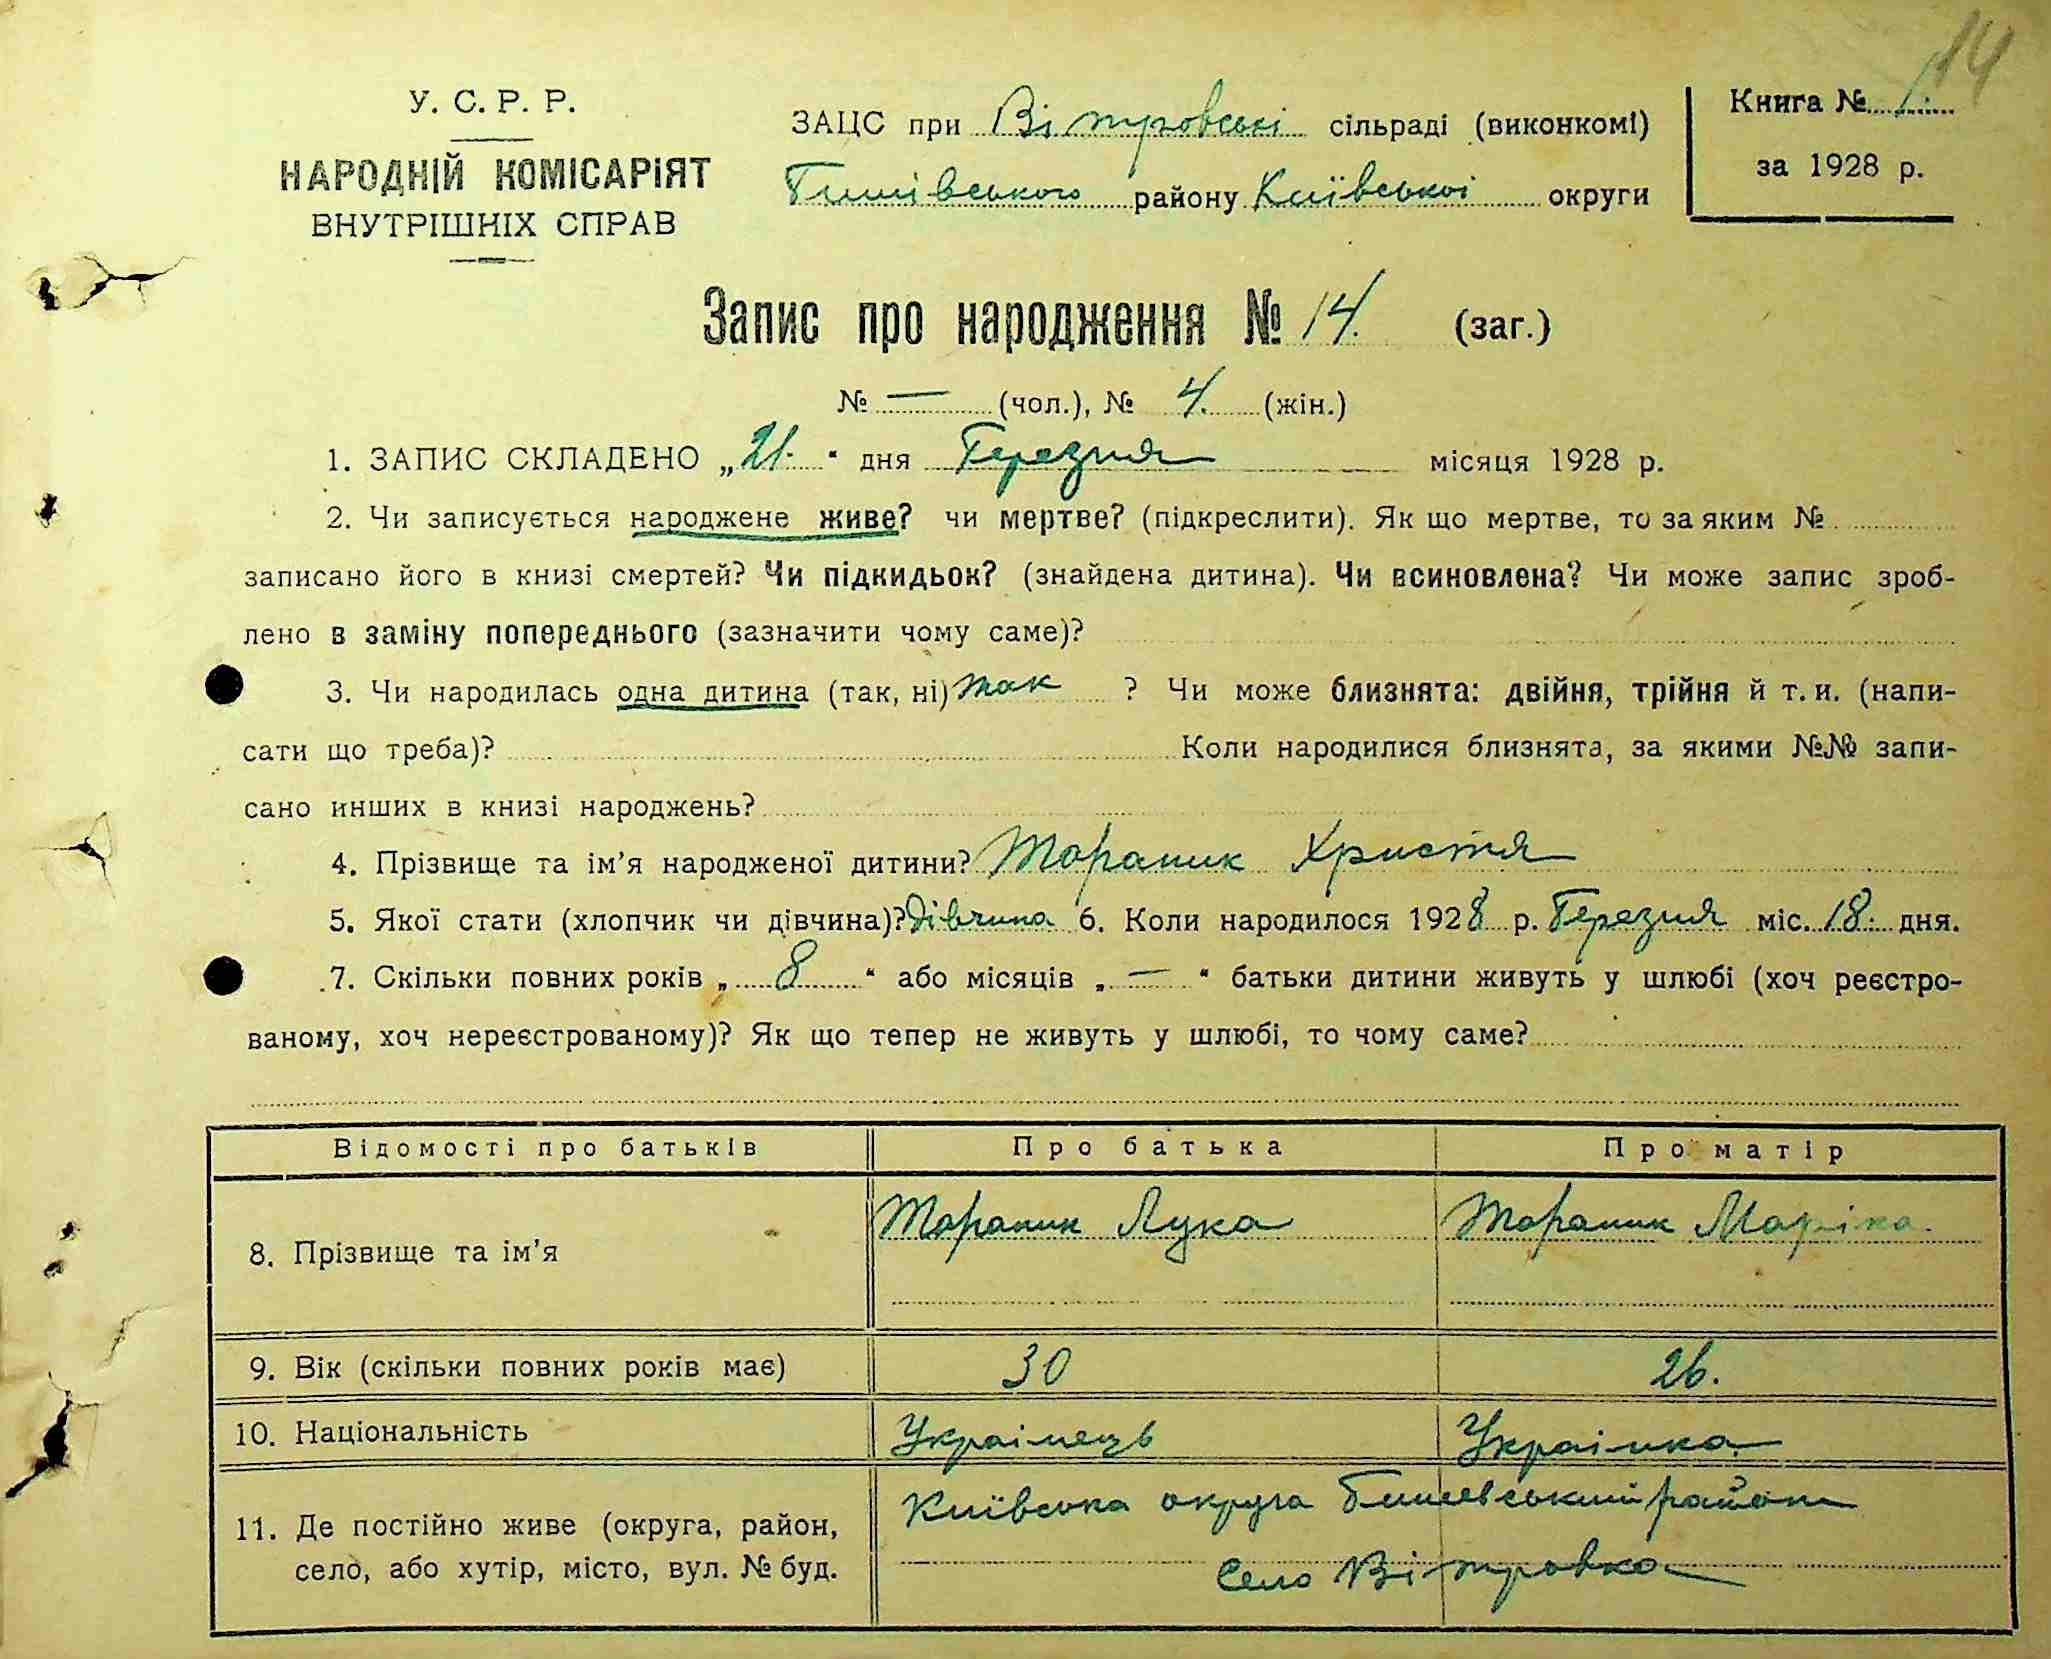 14
У. С. Р. Р.
НАРОДНІЙ КОМІСАРІЯТ
ВНУТРІШНІХ СПРАВ
ЗАЦС при Вітровські сільраді (виконкомі)
Бишівського району Київської округи
Книга № 1.
за 1928 р.
Запис про народження № 14. (заг.)
№ — (чол.), № 4. (жін.)
1. ЗАПИС СКЛАДЕНО „21." дня Березня місяця 1928 р.
2. Чи записується народжене живе? чи мертве? (підкреслити). Як що мертве, то за яким №
записано його в книзі смертей? Чи підкидьок? (знайдена дитина). Чи всиновлена? Чи може запис зроб-
лено в заміну попереднього (зазначити чому саме)?
3. Чи народилась одна дитина (так, ні) так ? Чи може близнята: двійня, трійня й т. и. (напи-
сати що треба)? Коли народилися близнята, за якими №№ запи-
сано инших в книзі народжень?
4. Прізвище та ім'я народженої дитини? Тараник Христя
5. Якої стати (хлопчик чи дівчина)? дівчина 6. Коли народилося 1928 р. Березня міс. 18. дня.
7. Скільки повних років „ 8 " або місяців „ — " батьки дитини живуть у шлюбі (хоч реєстро-
ваному, хоч нереєстрованому)? Як що тепер не живуть у шлюбі, то чому саме?
Відомості про батьків Про батька Про матір
8. Прізвище та ім'я Тараник Лука Тараник Маріка
9. Вік (скільки повних років має) 30 26.
10. Національність Украінець Украінка
11. Де постійно живе (округа, район, Київська округа Бишевський район
село, або хутір, місто, вул. № буд. село Вітровка